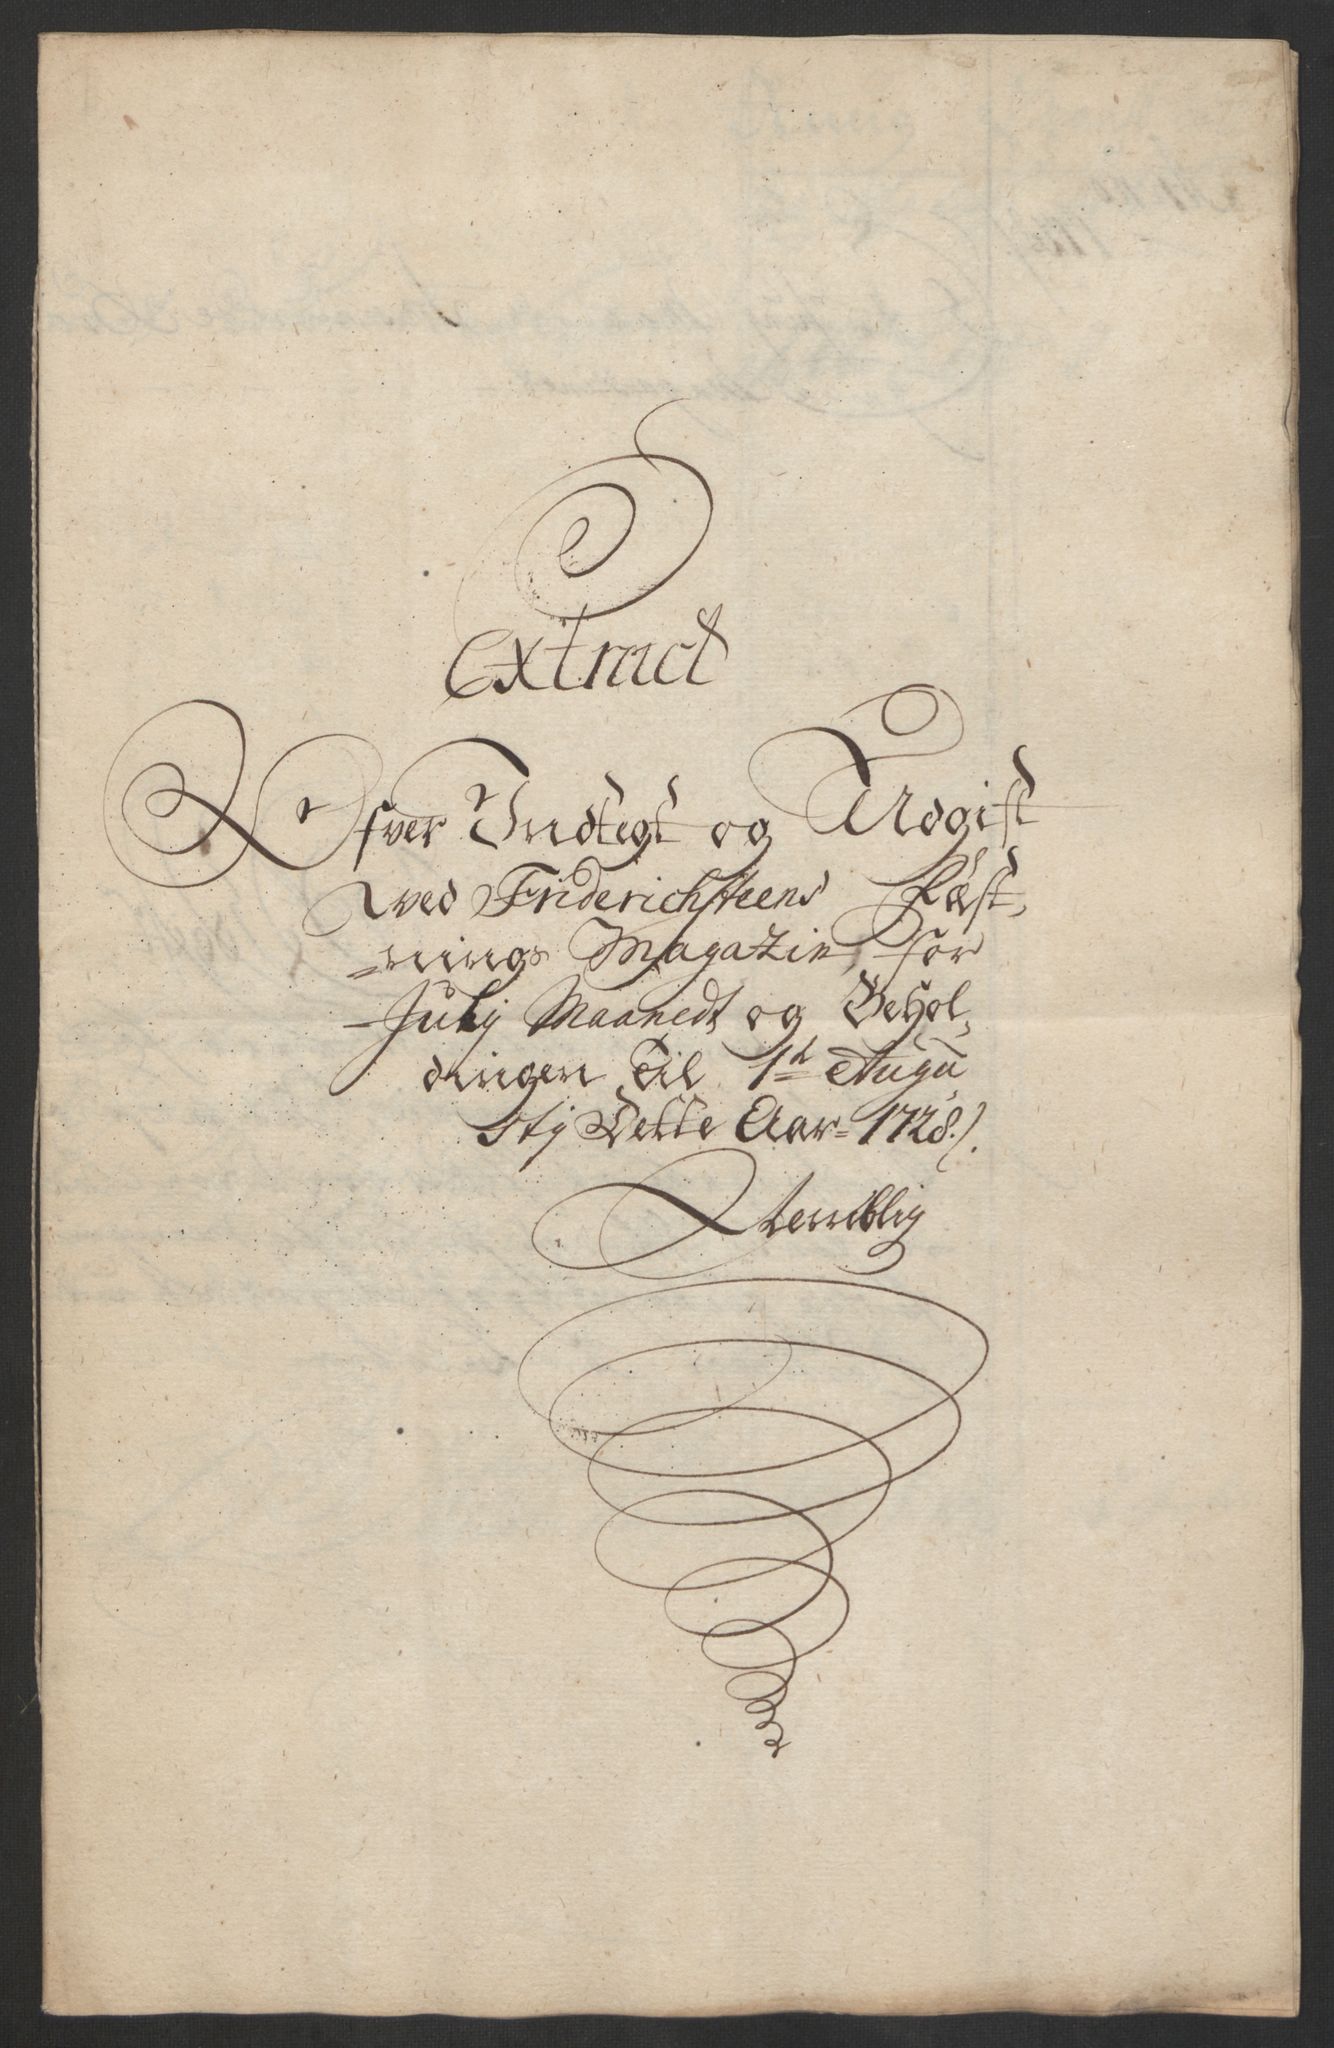 Extract
Ofver Indtegt og Udgift
ved Friderichsteens Fæst,
=nings Magazin, for
July Maanedt og Behol,
dingen Til 1st Augu
stij Dette Aar= 1728 /.
Nemblig